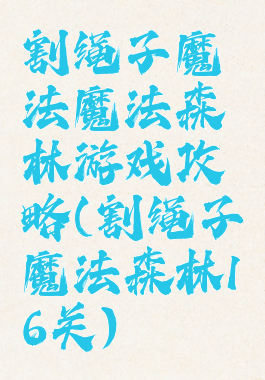 割绳子魔
法魔法森
林游戏攻
略(割绳子
魔法森林1
6关)